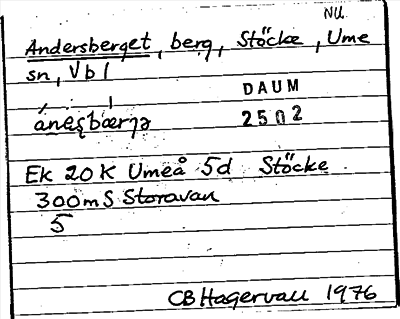 NU.
Andersberget, berg, Stöcke, Ume
sn, Vbl
DAUM
2502
Ek 20K Umeå 5d Stöcke
300m S Storavan
5
CBHagervall 1976